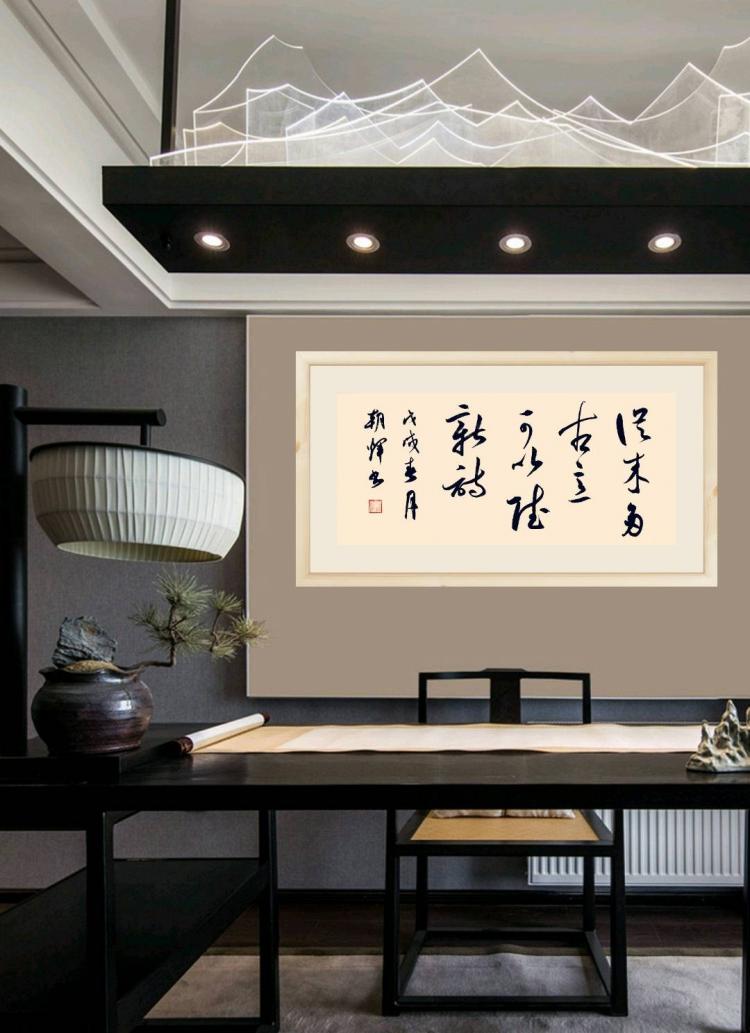 從来多
古意
可以賦
新詩
戊戌春月
朝輝书